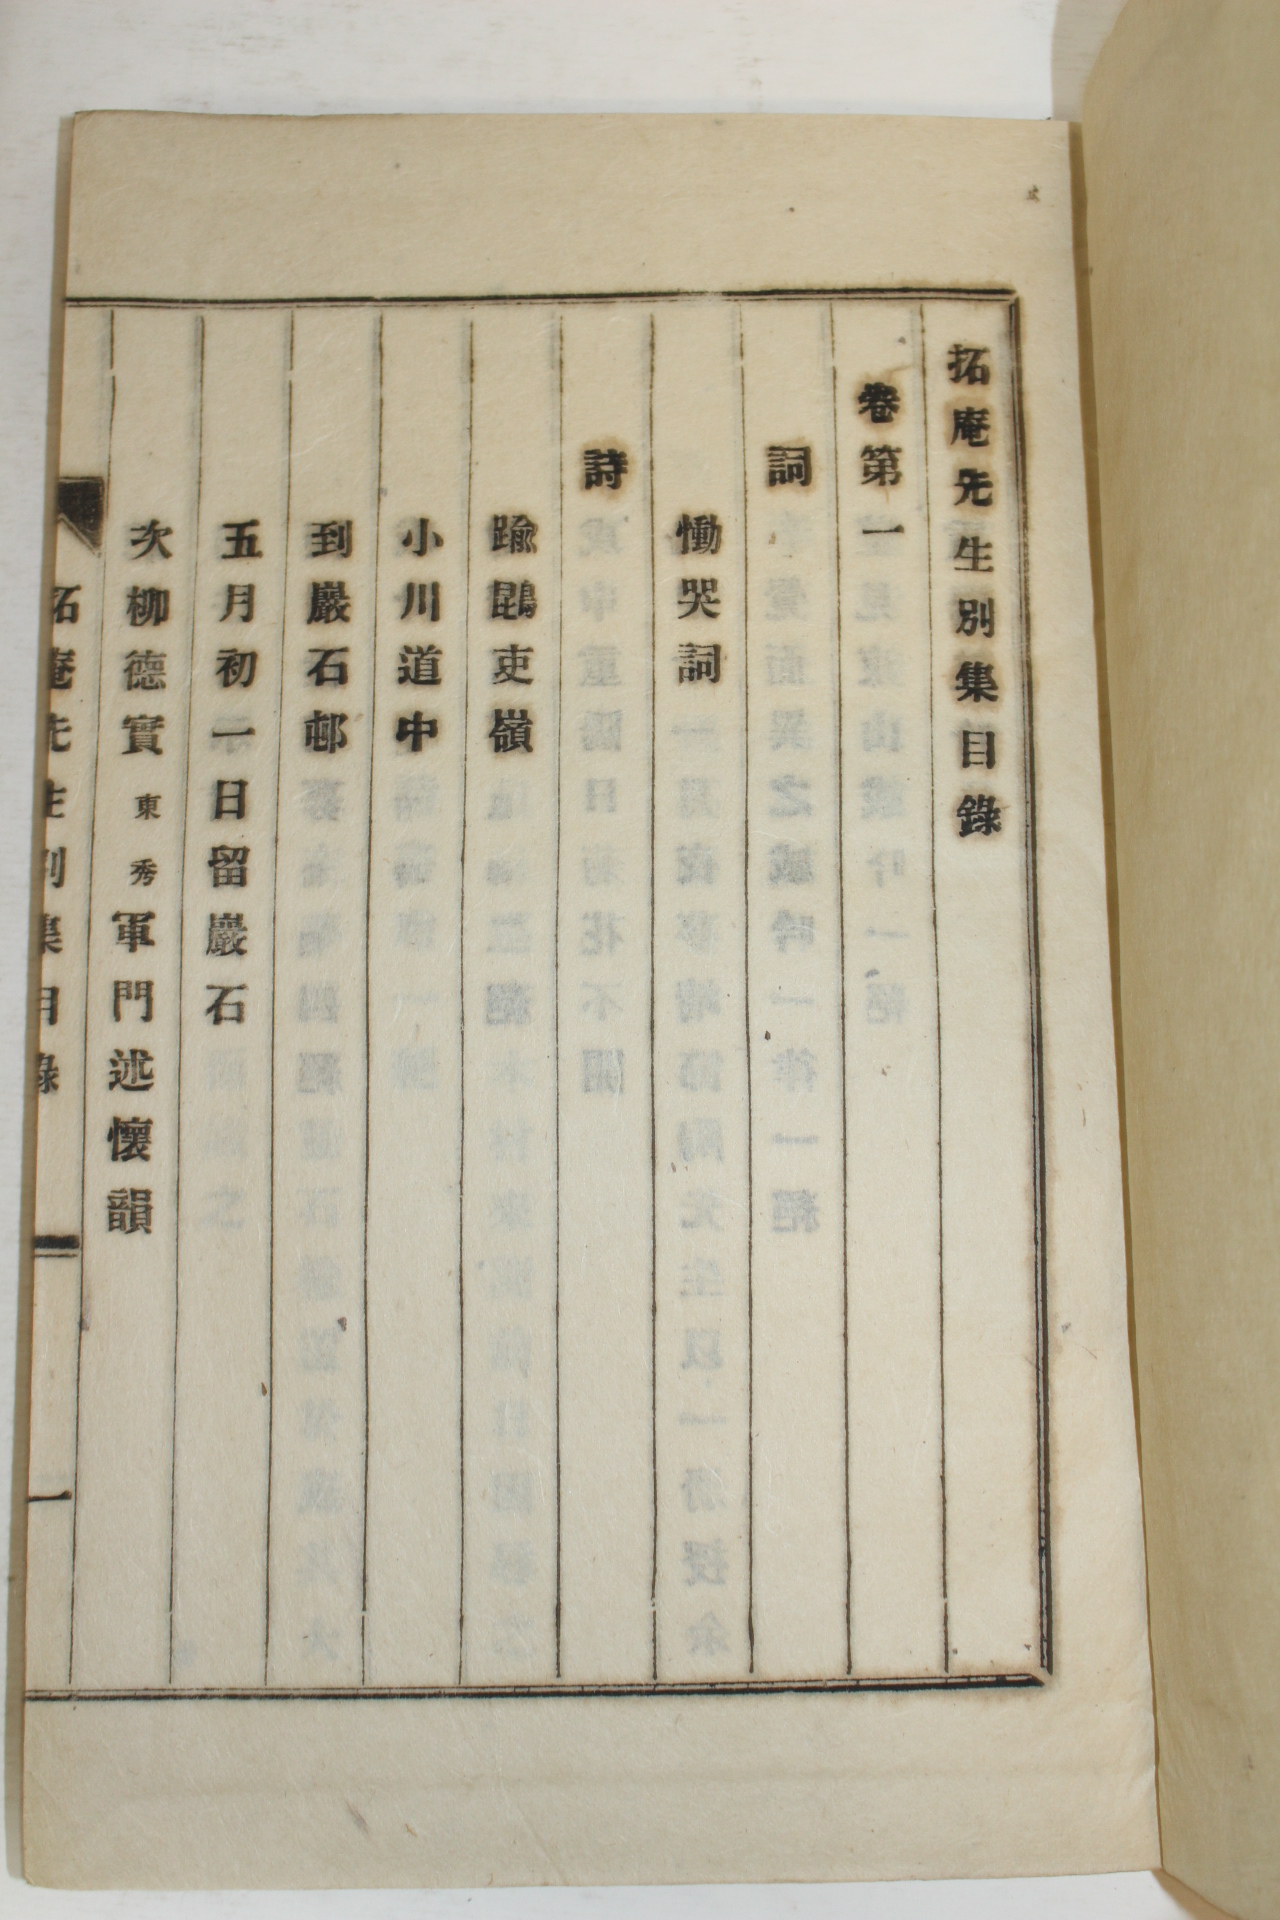 拓庵先生別集目錄
卷第一
詞
慟哭詞
詩
踰鵾吏嶺
小川道中
到巖石邨
五月初一日留巖石
次柳德實東秀軍門述懷韻
拓庵先生別集目錄
一